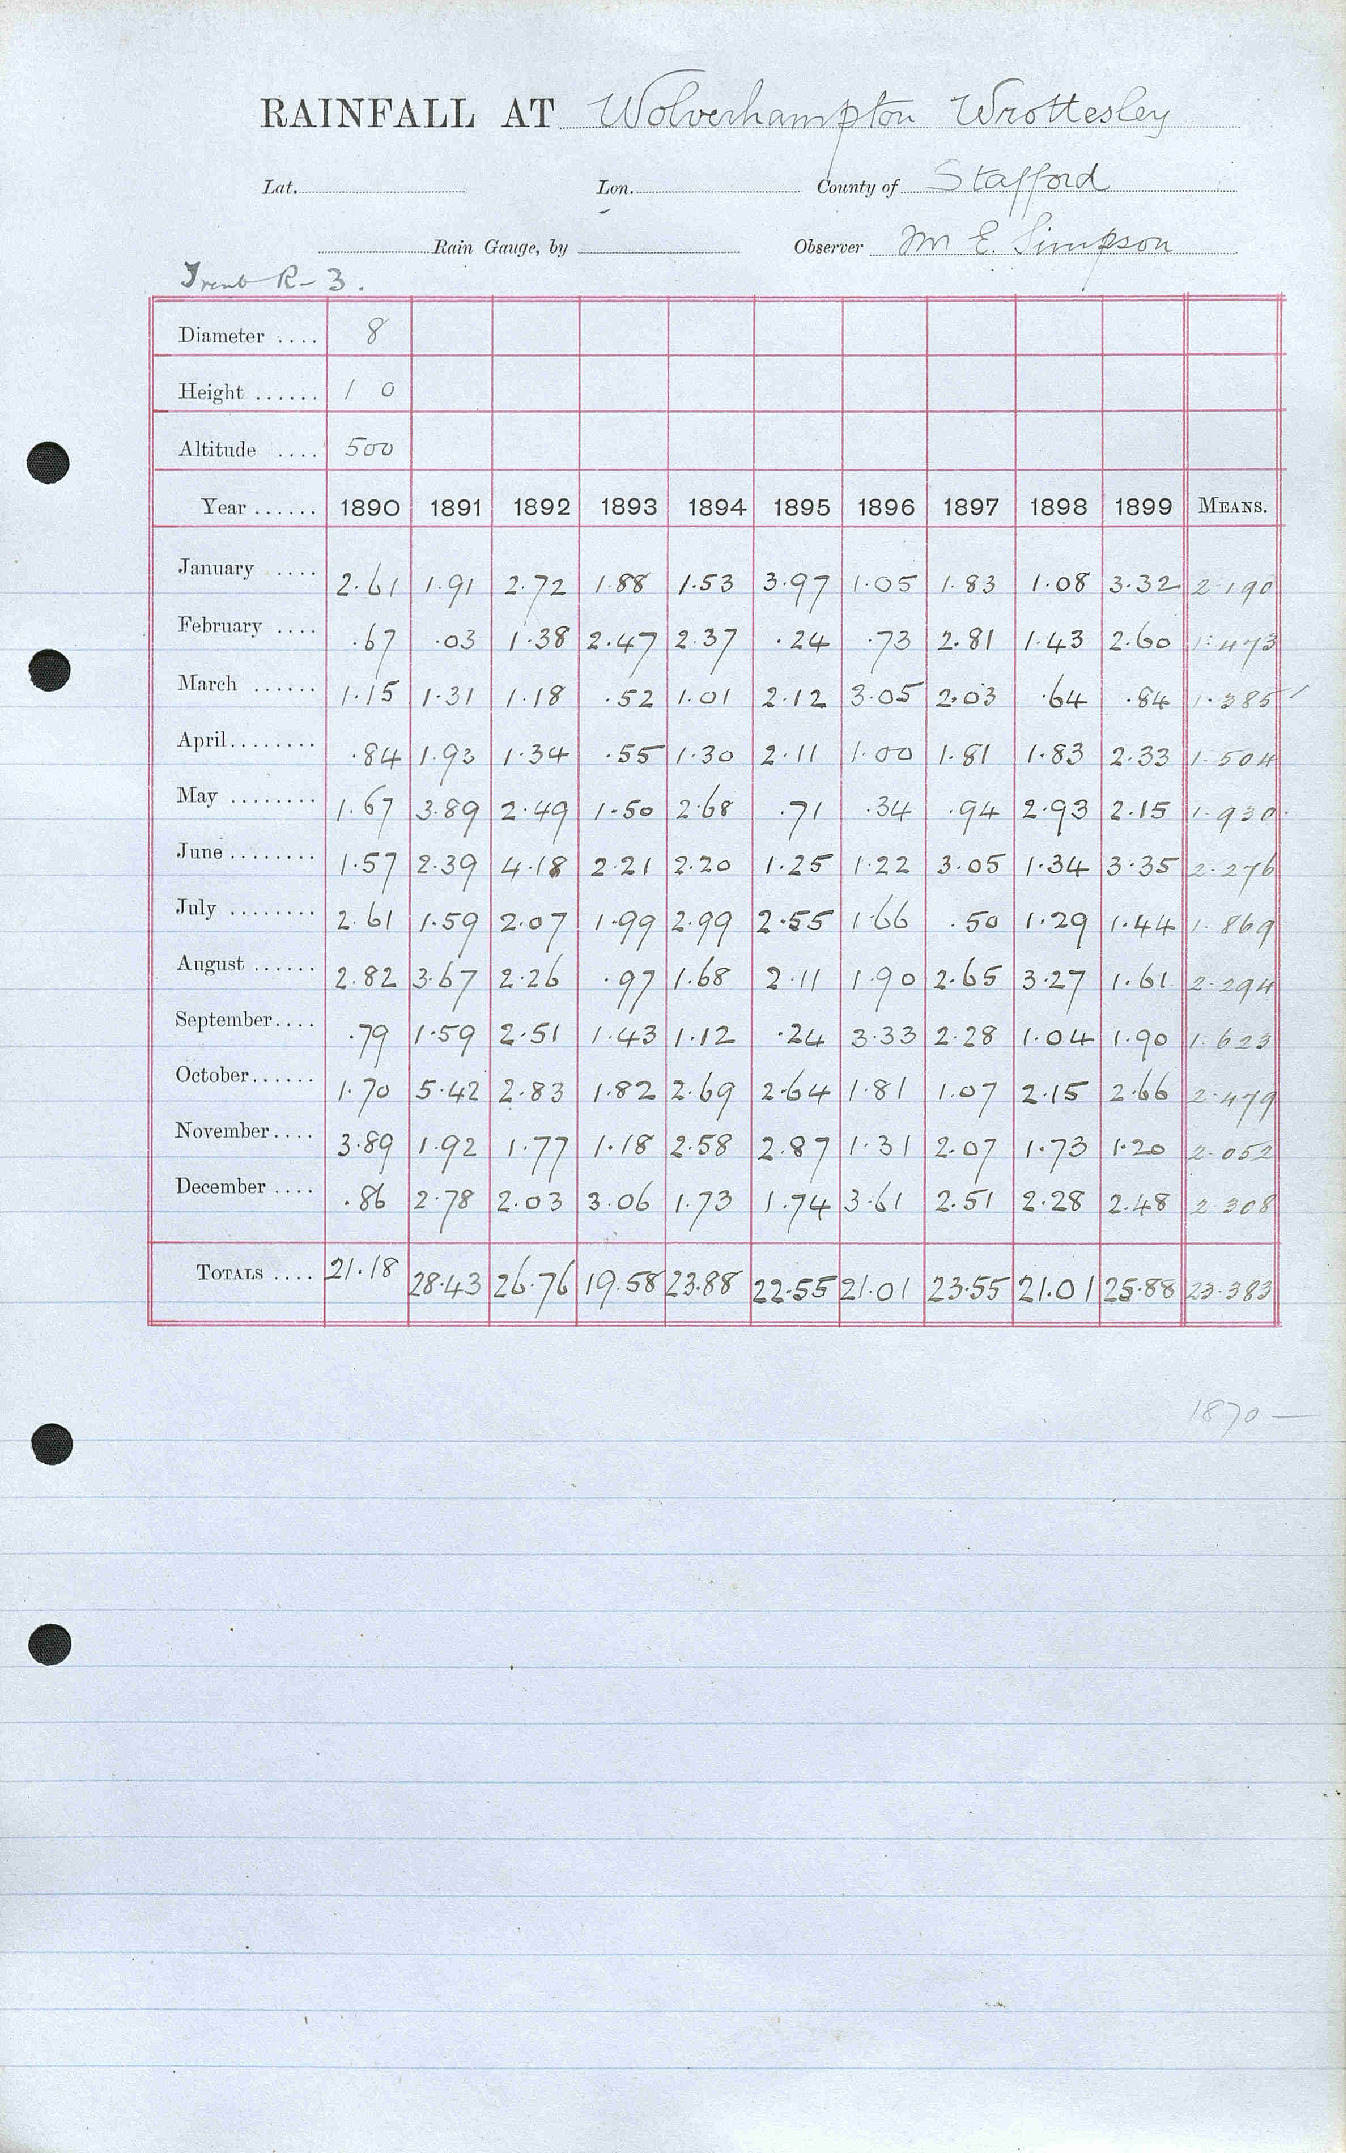 RAINFALL AT Wolverhampton Wrottesley
Lat. Lon. County of Stafford
Rain Gauge, by Observer Mr E. Simpson
Trent R- 3.
Diameter .... 8
Height ...... 1 0
Altitude .... 500
Year ...... 1890 1891 1892 1893 1894 1895 1896 1897 1898 1899 MEANS.
January .... 2.61 1.91 2.72 1.88 1.53 3.97 1.05 1.83 1.08 3.32 2.190
February .... .67 .03 1.38 2.47 2.37 .24 .73 2.81 1.43 2.60 1.473
March ...... 1.15 1.31 1.18 .52 1.01 2.12 3.05 2.03 .64 .84 1.385
April........ .84 1.93 1.34 .55 1.30 2.11 1.00 1.81 1.83 2.33 1.504
May ........ 1.67 3.89 2.49 1.50 2.68 .71 .34 .94 2.93 2.15 1.930
June ........ 1.57 2.39 4.18 2.21 2.20 1.25 1.22 3.05 1.34 3.35 2.276
July ........ 2.61 1.59 2.07 1.99 2.99 2.55 1.66 .50 1.29 1.44 1.869
August ...... 2.82 3.67 2.26 .97 1.68 2.11 1.90 2.65 3.27 1.61 2.294
September.... .79 1.59 2.51 1.43 1.12 .24 3.33 2.28 1.04 1.90 1.623
October...... 1.70 5.42 2.83 1.82 2.69 2.64 1.81 1.07 2.15 2.66 2.479
November.... 3.89 1.92 1.77 1.18 2.58 2.87 1.31 2.07 1.73 1.20 2.052
December .... .86 2.78 2.03 3.06 1.73 1.74 3.61 2.51 2.28 2.48 2.308
TOTALS .... 21.18 28.43 26.76 19.58 23.88 22.55 21.01 23.55 21.01 25.88 23.383
1870 —